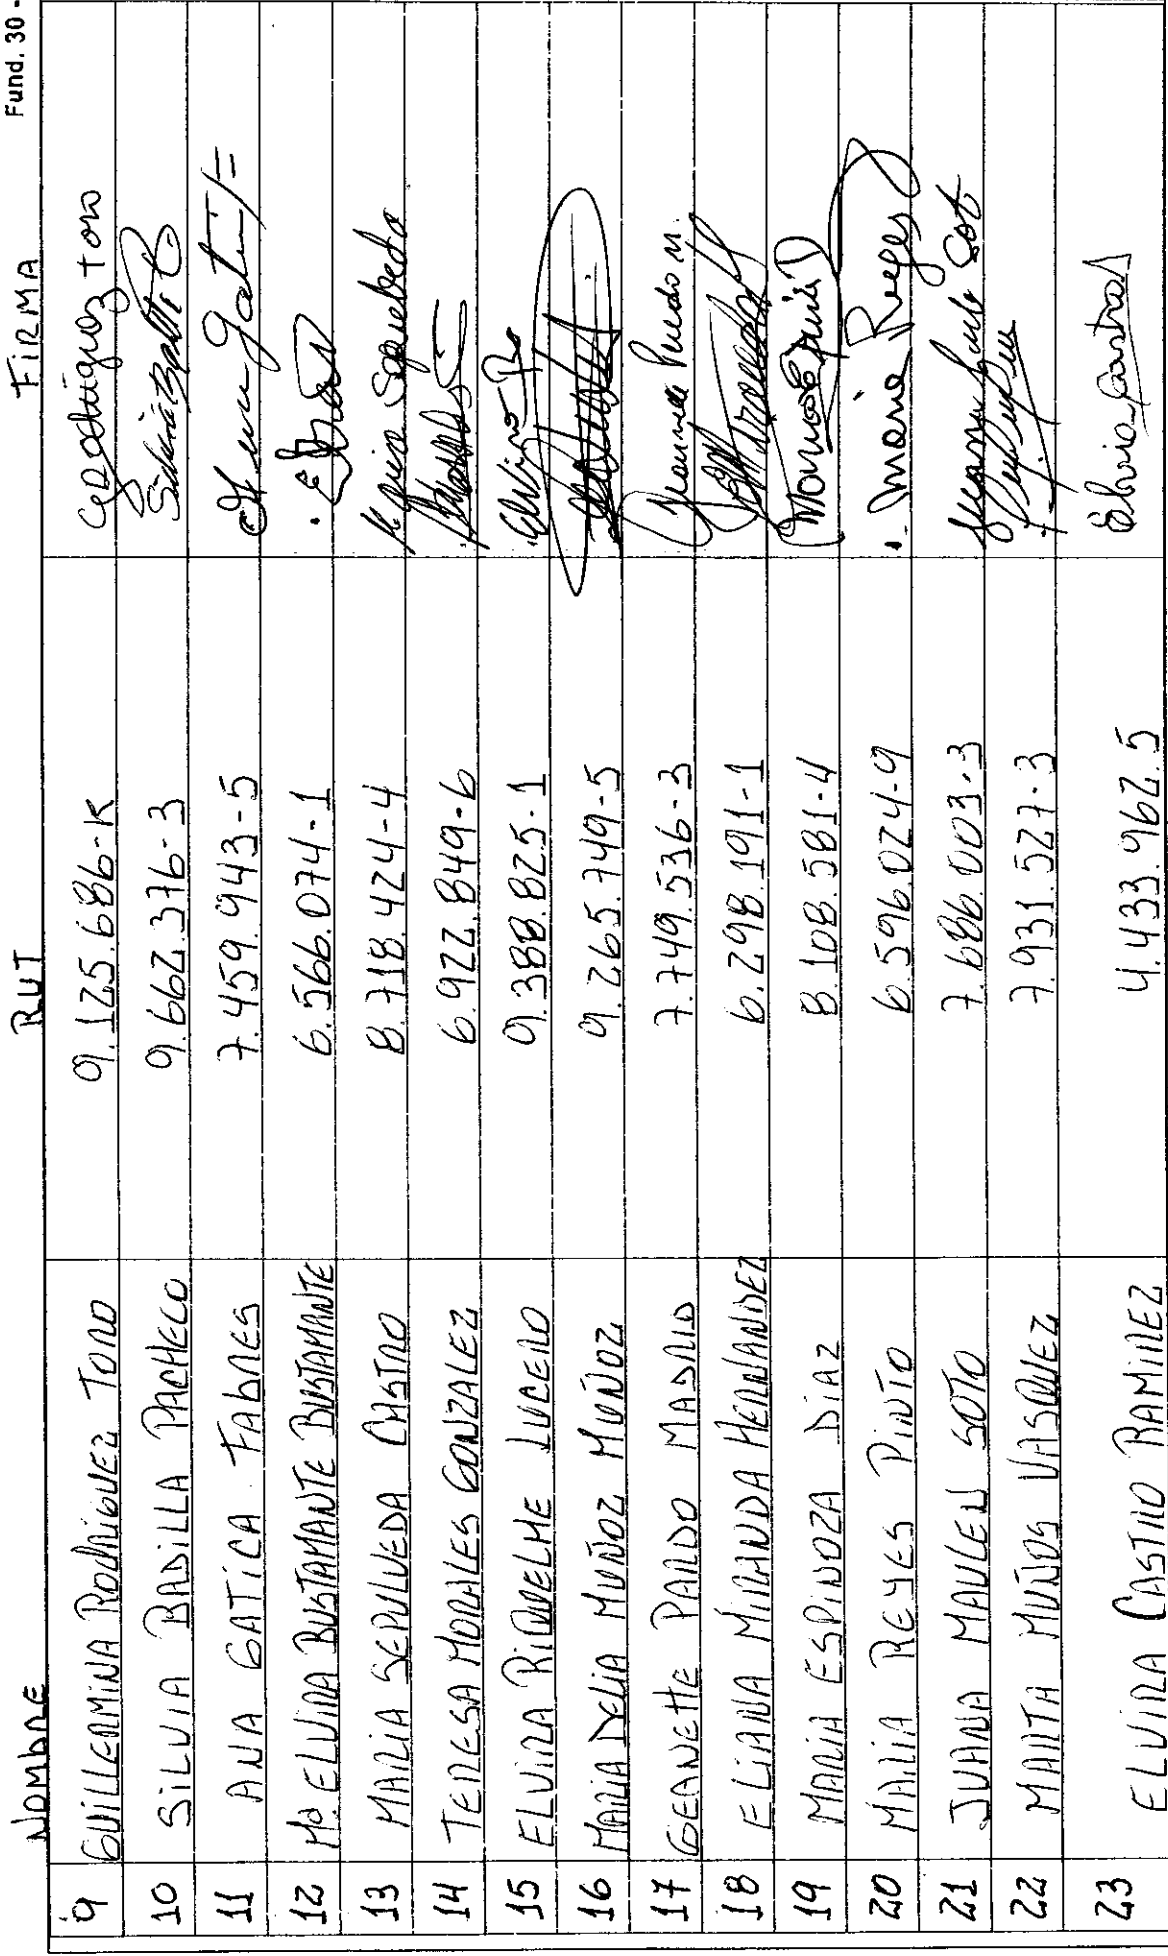 Fund. 30 -
NOMBRE RUT FIRMA
9 GUILLERMINA RODRIGUEZ TORO 9.125.686-K GRodriguez Toro
10 SILVIA BADILLA PACHECO 9.662.376-3
11 ANA GATICA FABRES 7.459.943-5
12 Mª ELVIRA BUSTAMANTE BUSTAMANTE 6.566.074-1
13 MARIA SEPULVEDA CASTRO 8.718.424-4
14 TERESA MORALES GONZALEZ 6.922.849-6
15 ELVIRA RIQUELME LUCERO 9.388.825-1
16 MARIA DELIA MUÑOZ MUÑOZ 9.265.749-5
17 GEANETTE PARDO MADRID 7.749.536-3
18 ELIANA MIRANDA HERNANDEZ 6.298.191-1
19 MARIA ESPINOZA DIAZ 8.108.581-4
20 MARIA REYES PINTO 6.596.024-9 Maria Reyes
21 JUANA MAULEN SOTO 7.686.003-3
22 MARTA MUÑOS VASQUEZ 7.931.527-3
23 ELVIRA CASTRO RAMIREZ 4.433.962.5 Elvira Castro